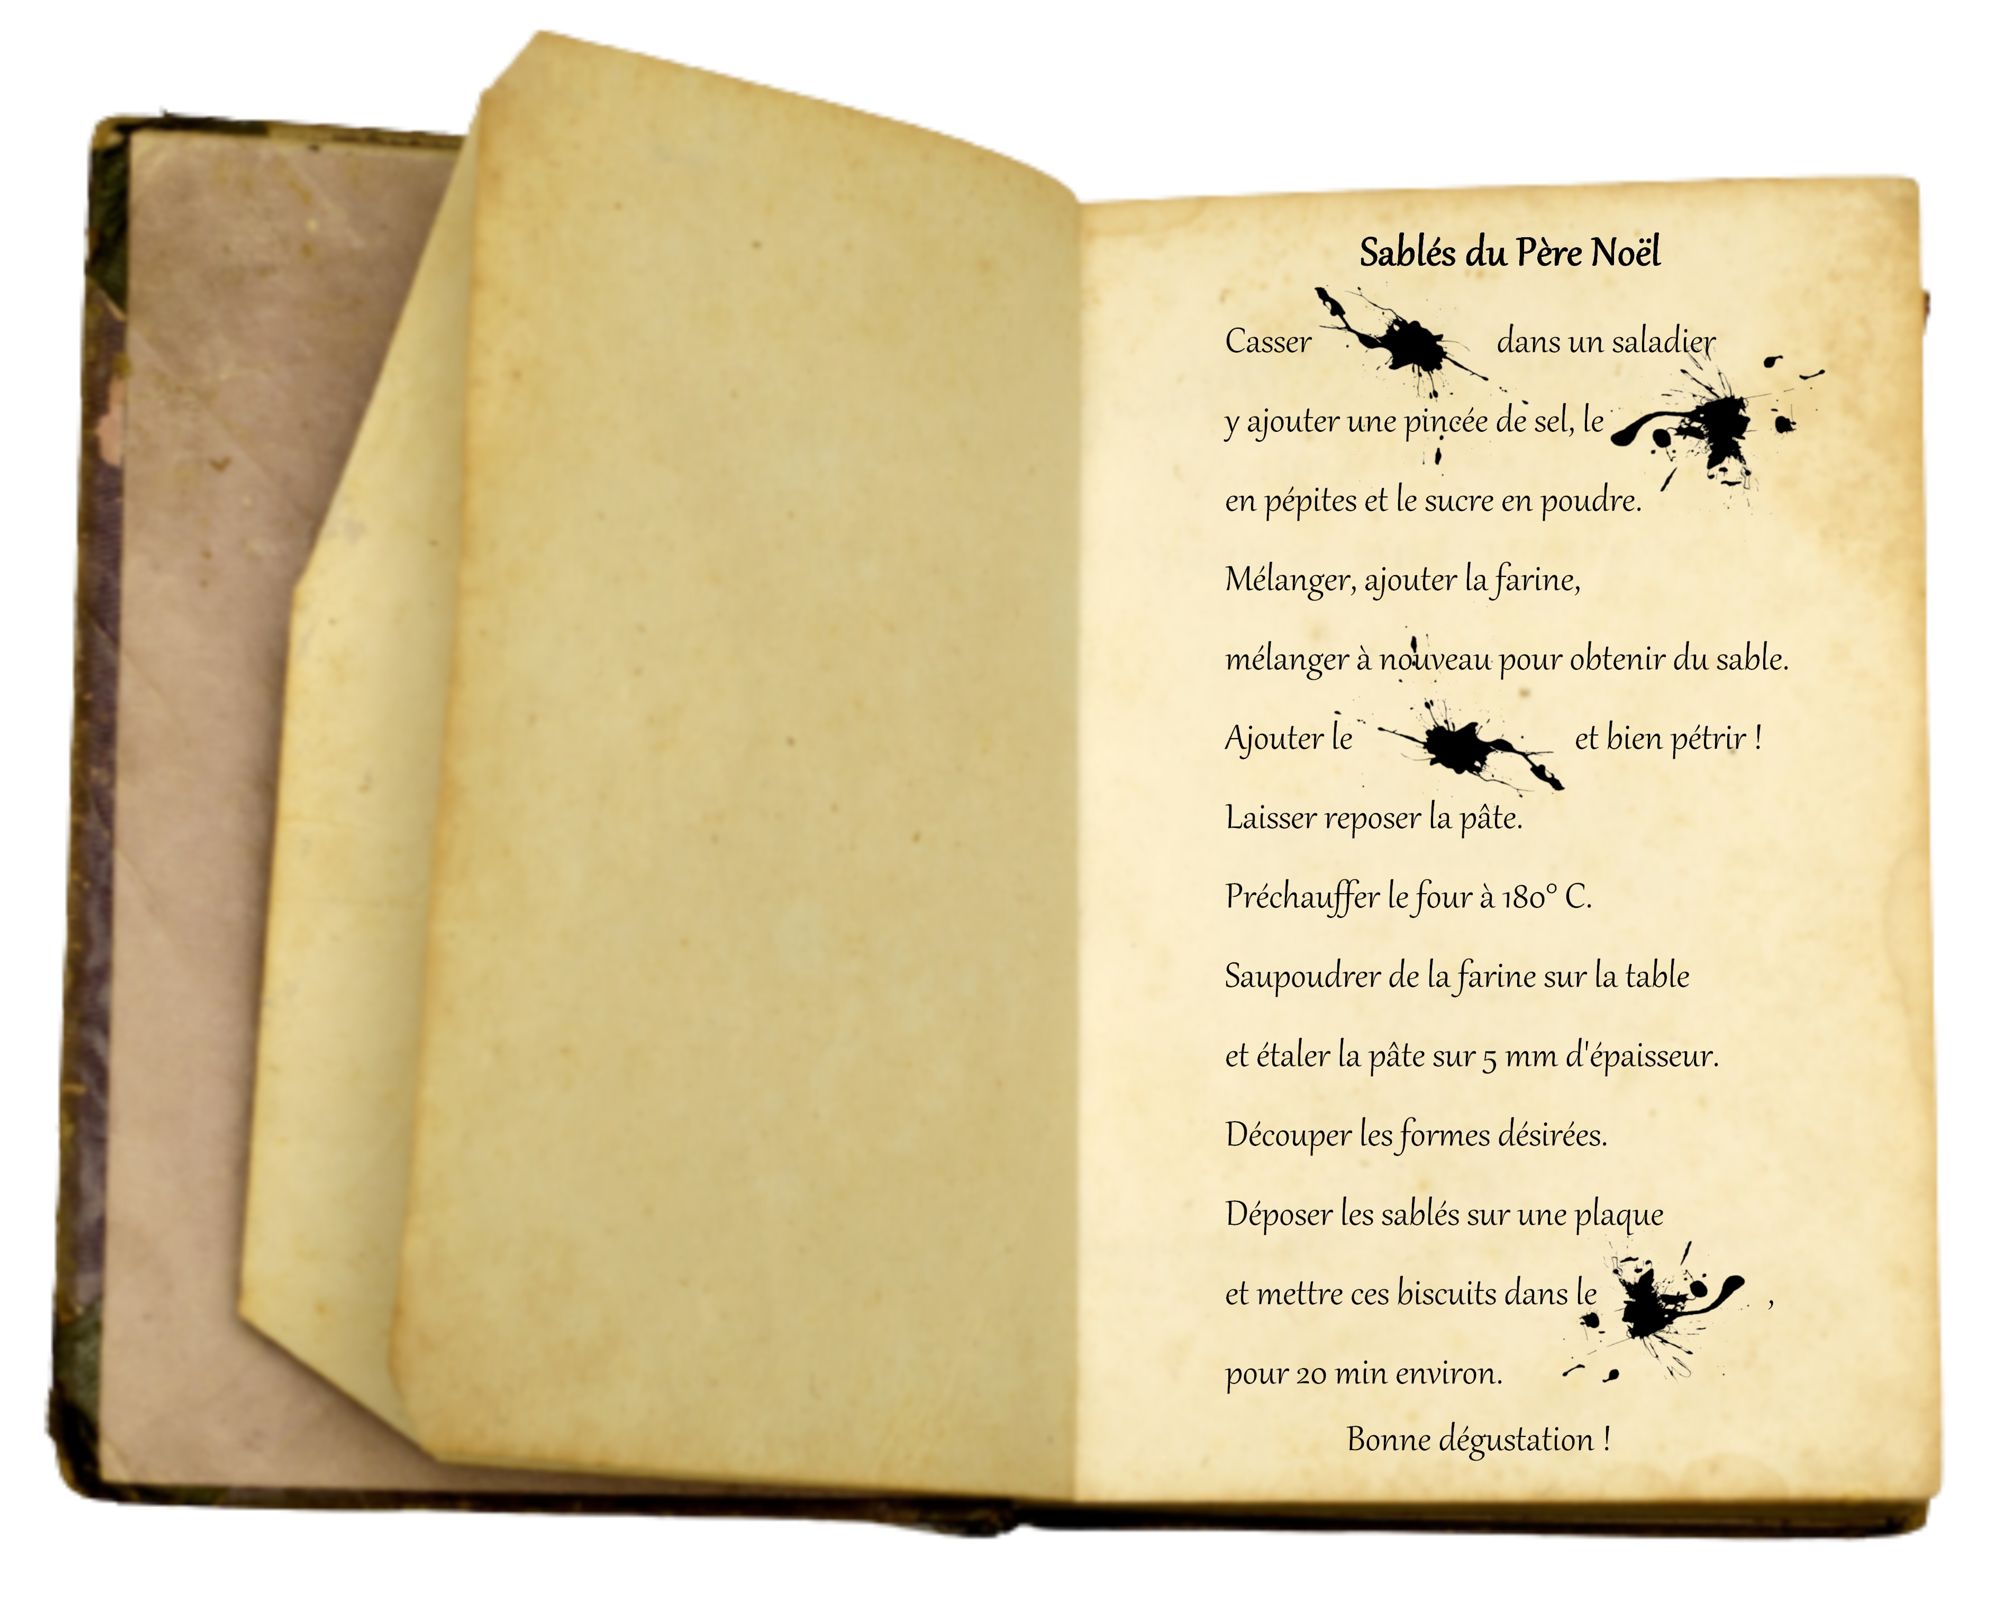 Sablés du Père Noël
Casser dans un saladier
y ajouter une pincée de sel, le
en pépites et le sucre en poudre.
Mélanger, ajouter la farine,
mélanger à nouveau pour obtenir du sable.
Ajouter le et bien pétrir !
Laisser reposer la pâte.
Préchauffer le four à 180° C.
Saupoudrer de la farine sur la table
et étaler la pâte sur 5 mm d'épaisseur.
Découper les formes désirées.
Déposer les sablés sur une plaque
et mettre ces biscuits dans le ,
pour 20 min environ.
Bonne dégustation !